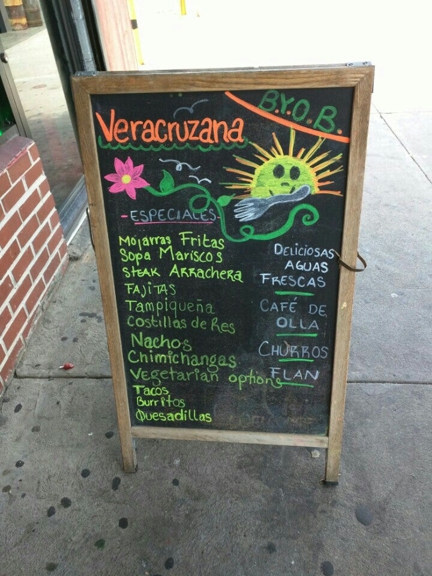 B.Y.O.B.
Veracruzana
- ESPECIALES -
Mojarras Fritas
Sopa Mariscos
Steak Arrachera
FAJITAS
Tampiqueña
Costillas de Res
Nachos
Chimichangas
Vegetarian options
Tacos
Burritos
Quesadillas
DELICIOSAS
AGUAS
FRESCAS
CAFÉ DE
OLLA
CHURROS
FLAN